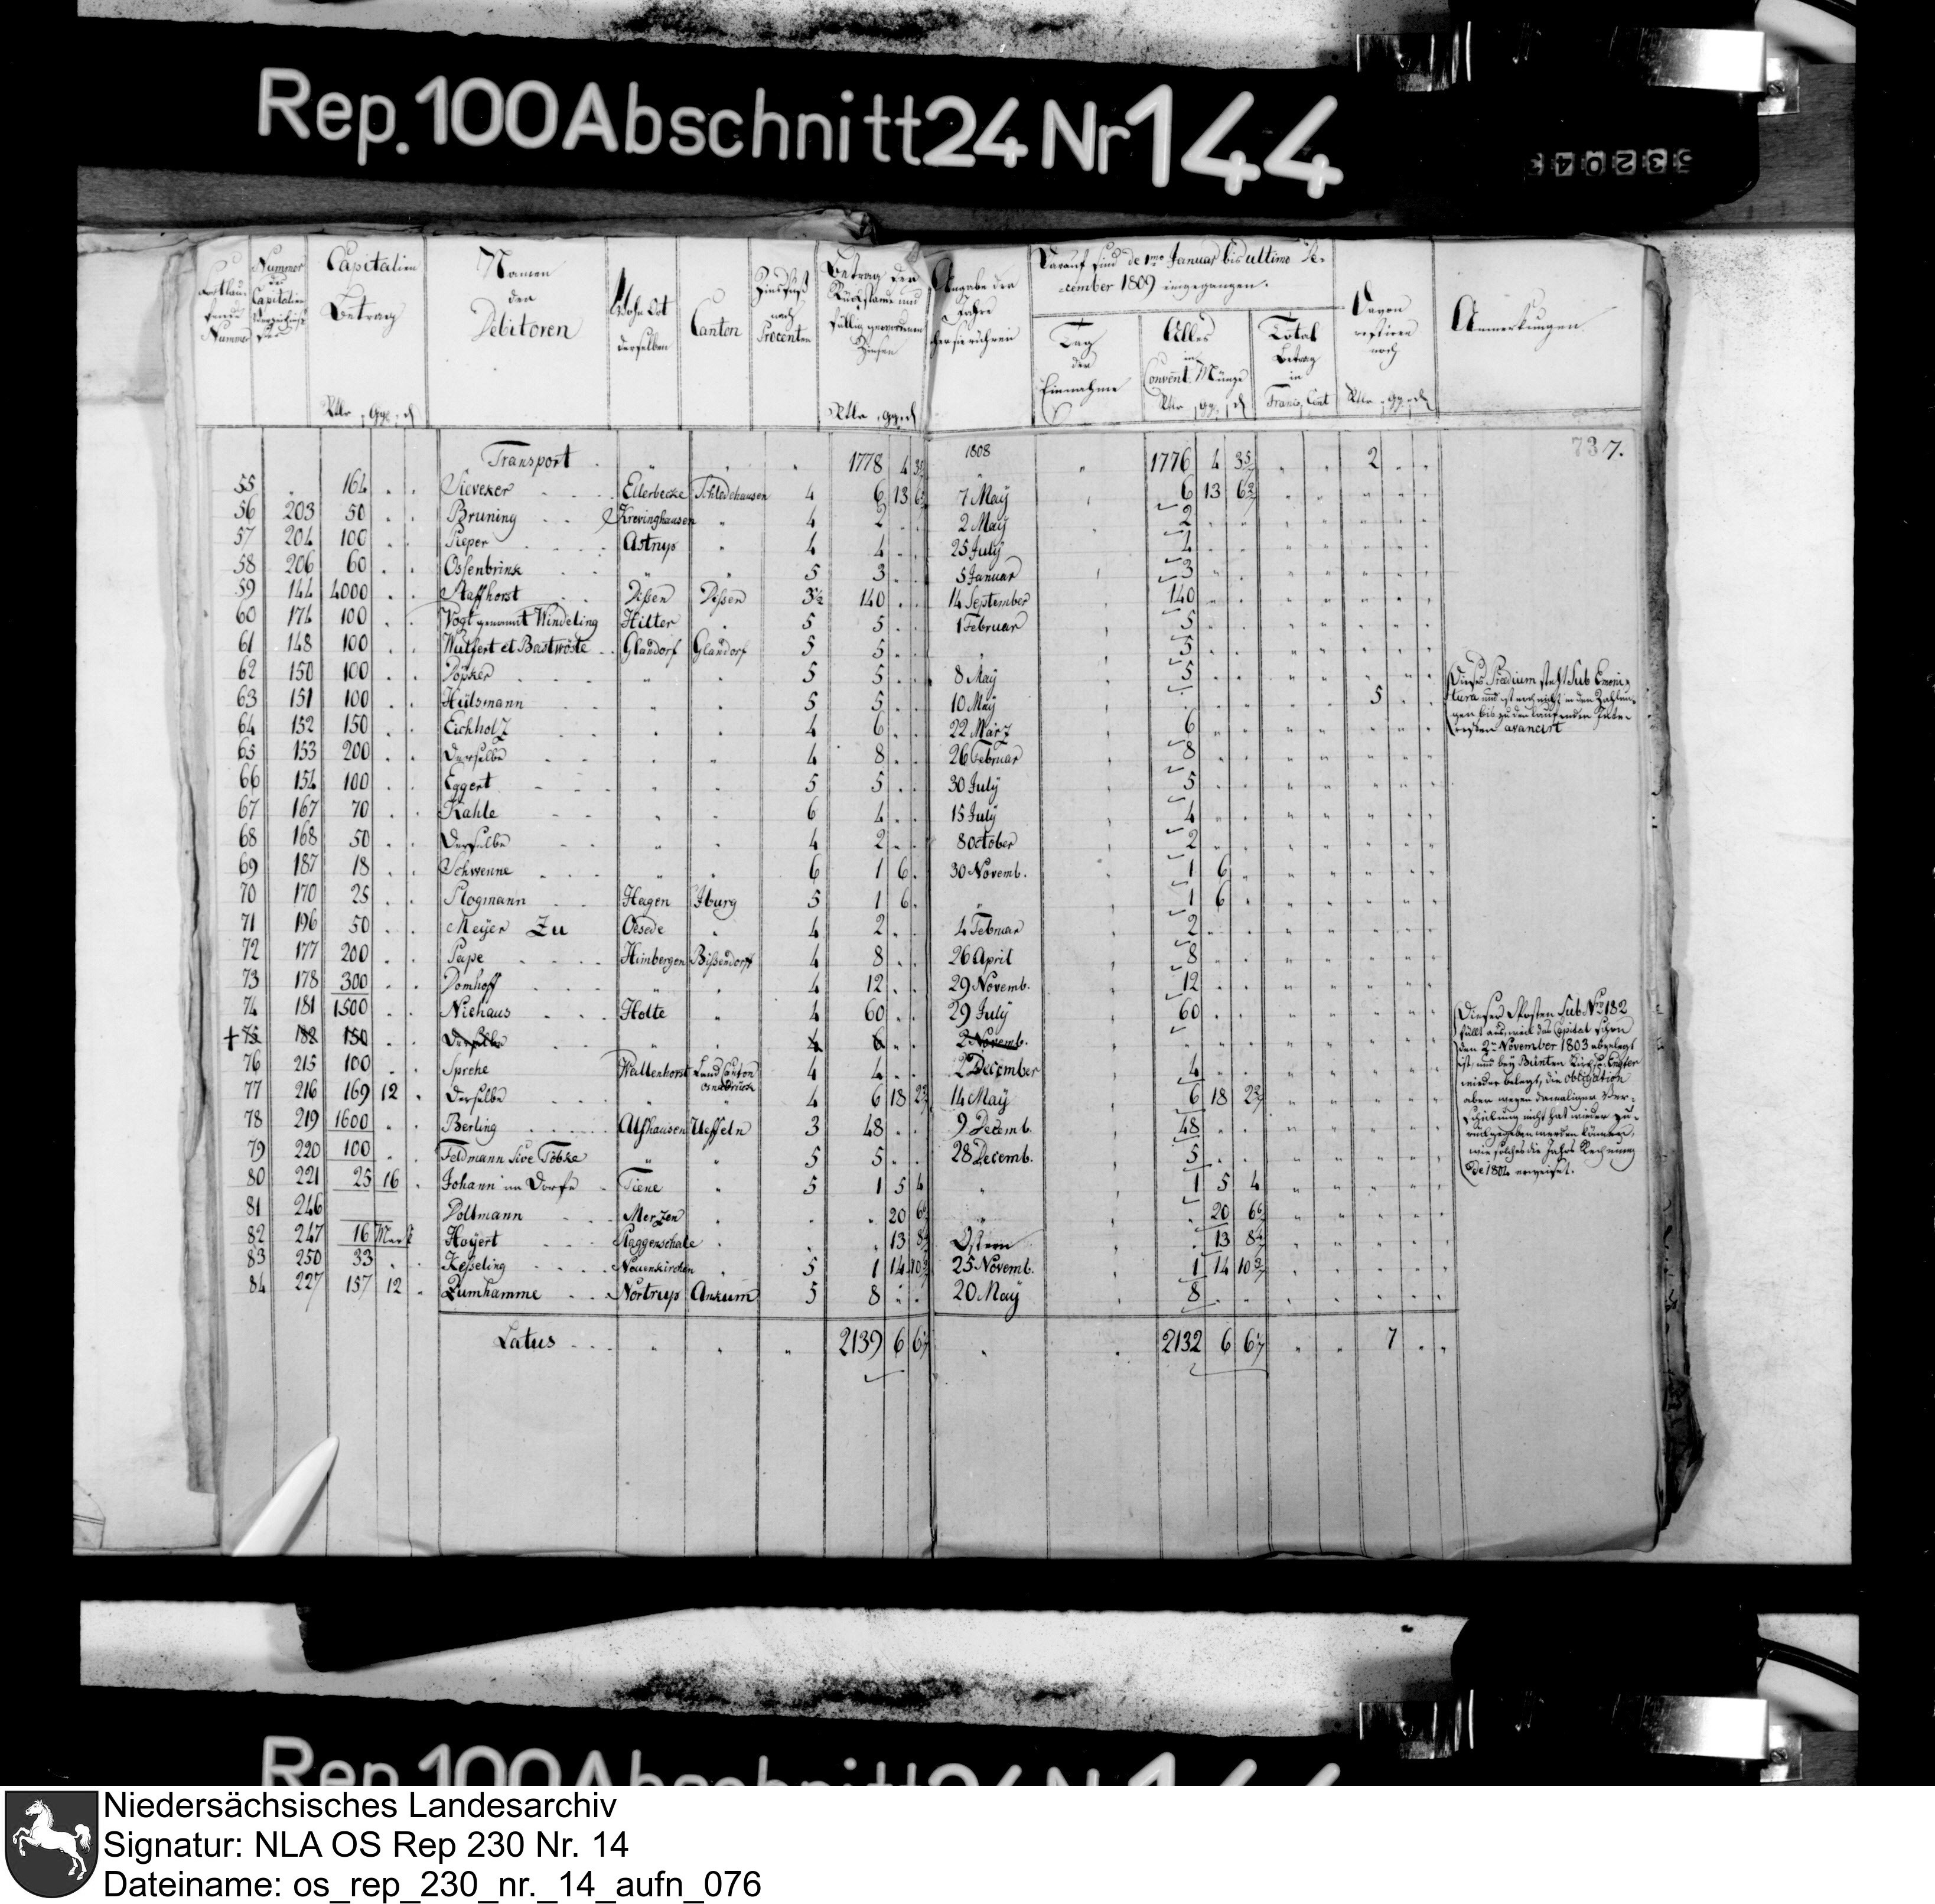 Rep. 100 Abschnitt 24 Nr 144
53204
Fortlaufende Nummer
Nummer der Capitalien
Capitalien Betrag
Rtlr ggr d
Namen der Debitoren
Wohn Ort derselben
Canton
Zinsfuß nach Procenten
Betrag der Rückstände und fällig gewordenen Zinsen
Rtlr ggr d
Angabe der Jahre
Darauf sind de 1mo Januar bis ultimo December 1809 eingegangen.
Tag der Einnahme
Alles in Convent. Münze
Rtlr ggr d
Total Betrag in
Francs Cent
Davon restiren noch
Rtlr ggr d
Anmerkungen
737.
Transport 1778 4 1808 1776 4 3 5/7 2
55 164 Sieveker Ellerbecke Schledehausen 4 6 13 7 Maÿ 6 13
56 203 50 Bruning Krevinghausen 4 2 2 Maÿ 2
57 204 100 Pieper Astrup 4 4 25 July 4
58 206 60 Ossenbrink 5 3 5 Januar 3
59 144 4000 Staffhorst Dißen Dißen 3½ 140 14 September 140
60 174 100 Vogt genannt Windeling Hilter 5 5 1 Februar 5
61 148 100 Wulfert et Bastwöste Glandorf Glandorf 5 5 5
62 150 100 Pöpker 5 5 8 Maÿ 5
63 151 100 Hülsmann 5 5 10 Maÿ 5
64 152 150 Eichholz 4 6 22 März 6
65 153 200 Derselbe 4 8 26 Februar 8
66 154 100 Eggert 5 5 30 July 5
67 167 70 Kahle 6 4 15 July 4
68 168 50 Derselbe 4 2 8 October 2
69 187 18 Schwenne 6 1 6 30 Novemb. 1 6
70 170 25 Plogmann Hagen Iburg 5 1 6 1 6
71 196 50 Meÿer Zu Oesede 4 2 4 Februar 2
72 177 200 Pape Himbergen Bißendorff 4 8 26 April 8
73 178 300 Domhoff 4 12 29 Novemb. 12
74 181 1500 Niehaus Holte 4 60 29 July 60
+75 182 150 Derselbe 4 6 2 Novemb.
76 215 100 Sprehe Wallenhorst Land Canton Osnabrück 4 4 2 December 4
77 216 169 12 Derselbe 4 6 18 14 Maÿ 6 18
78 219 1600 Berling Alfhausen Ueffeln 3 48 9 Decemb. 48
79 220 100 Feldmann sive Töbke 5 5 28 Decemb. 5
80 221 25 16 Johann im Dorfe Tiene 5 1 5 4 1 5 4
81 246 Pollmann Merzen 20 20
82 247 16 Hoÿert Plaggenschale 13 Ostern 13
83 250 33 Keßeling Neuenkirchen 5 1 14 25 Novemb. 1 14
84 227 157 12 Zumhamme Nortrup Ankum 5 8 20 Maÿ 8
Latus 2139 6 2132 6 7
Dieses Praedium steht sub
tura und ist noch nicht in den Zahlun-
gen bis zu den laufenden Inte-
ressen avancirt
Dieser Posten sub Nro 182
fällt aus, weil das Capital schon
den 2n November 1803 abgelegt
ist, und bey
wieder belegt, die Obligation
aber wegen damaliger Ver-
nicht hat wieder zu-
rückgegeben werden können,
wie solches die Jahrs Rechnung
de 1804 erweiset.
Rep. 100 Abschnitt 24 Nr 144
Niedersächsisches Landesarchiv
Signatur: NLA OS Rep 230 Nr. 14
Dateiname: os_rep_230_nr._14_aufn_076